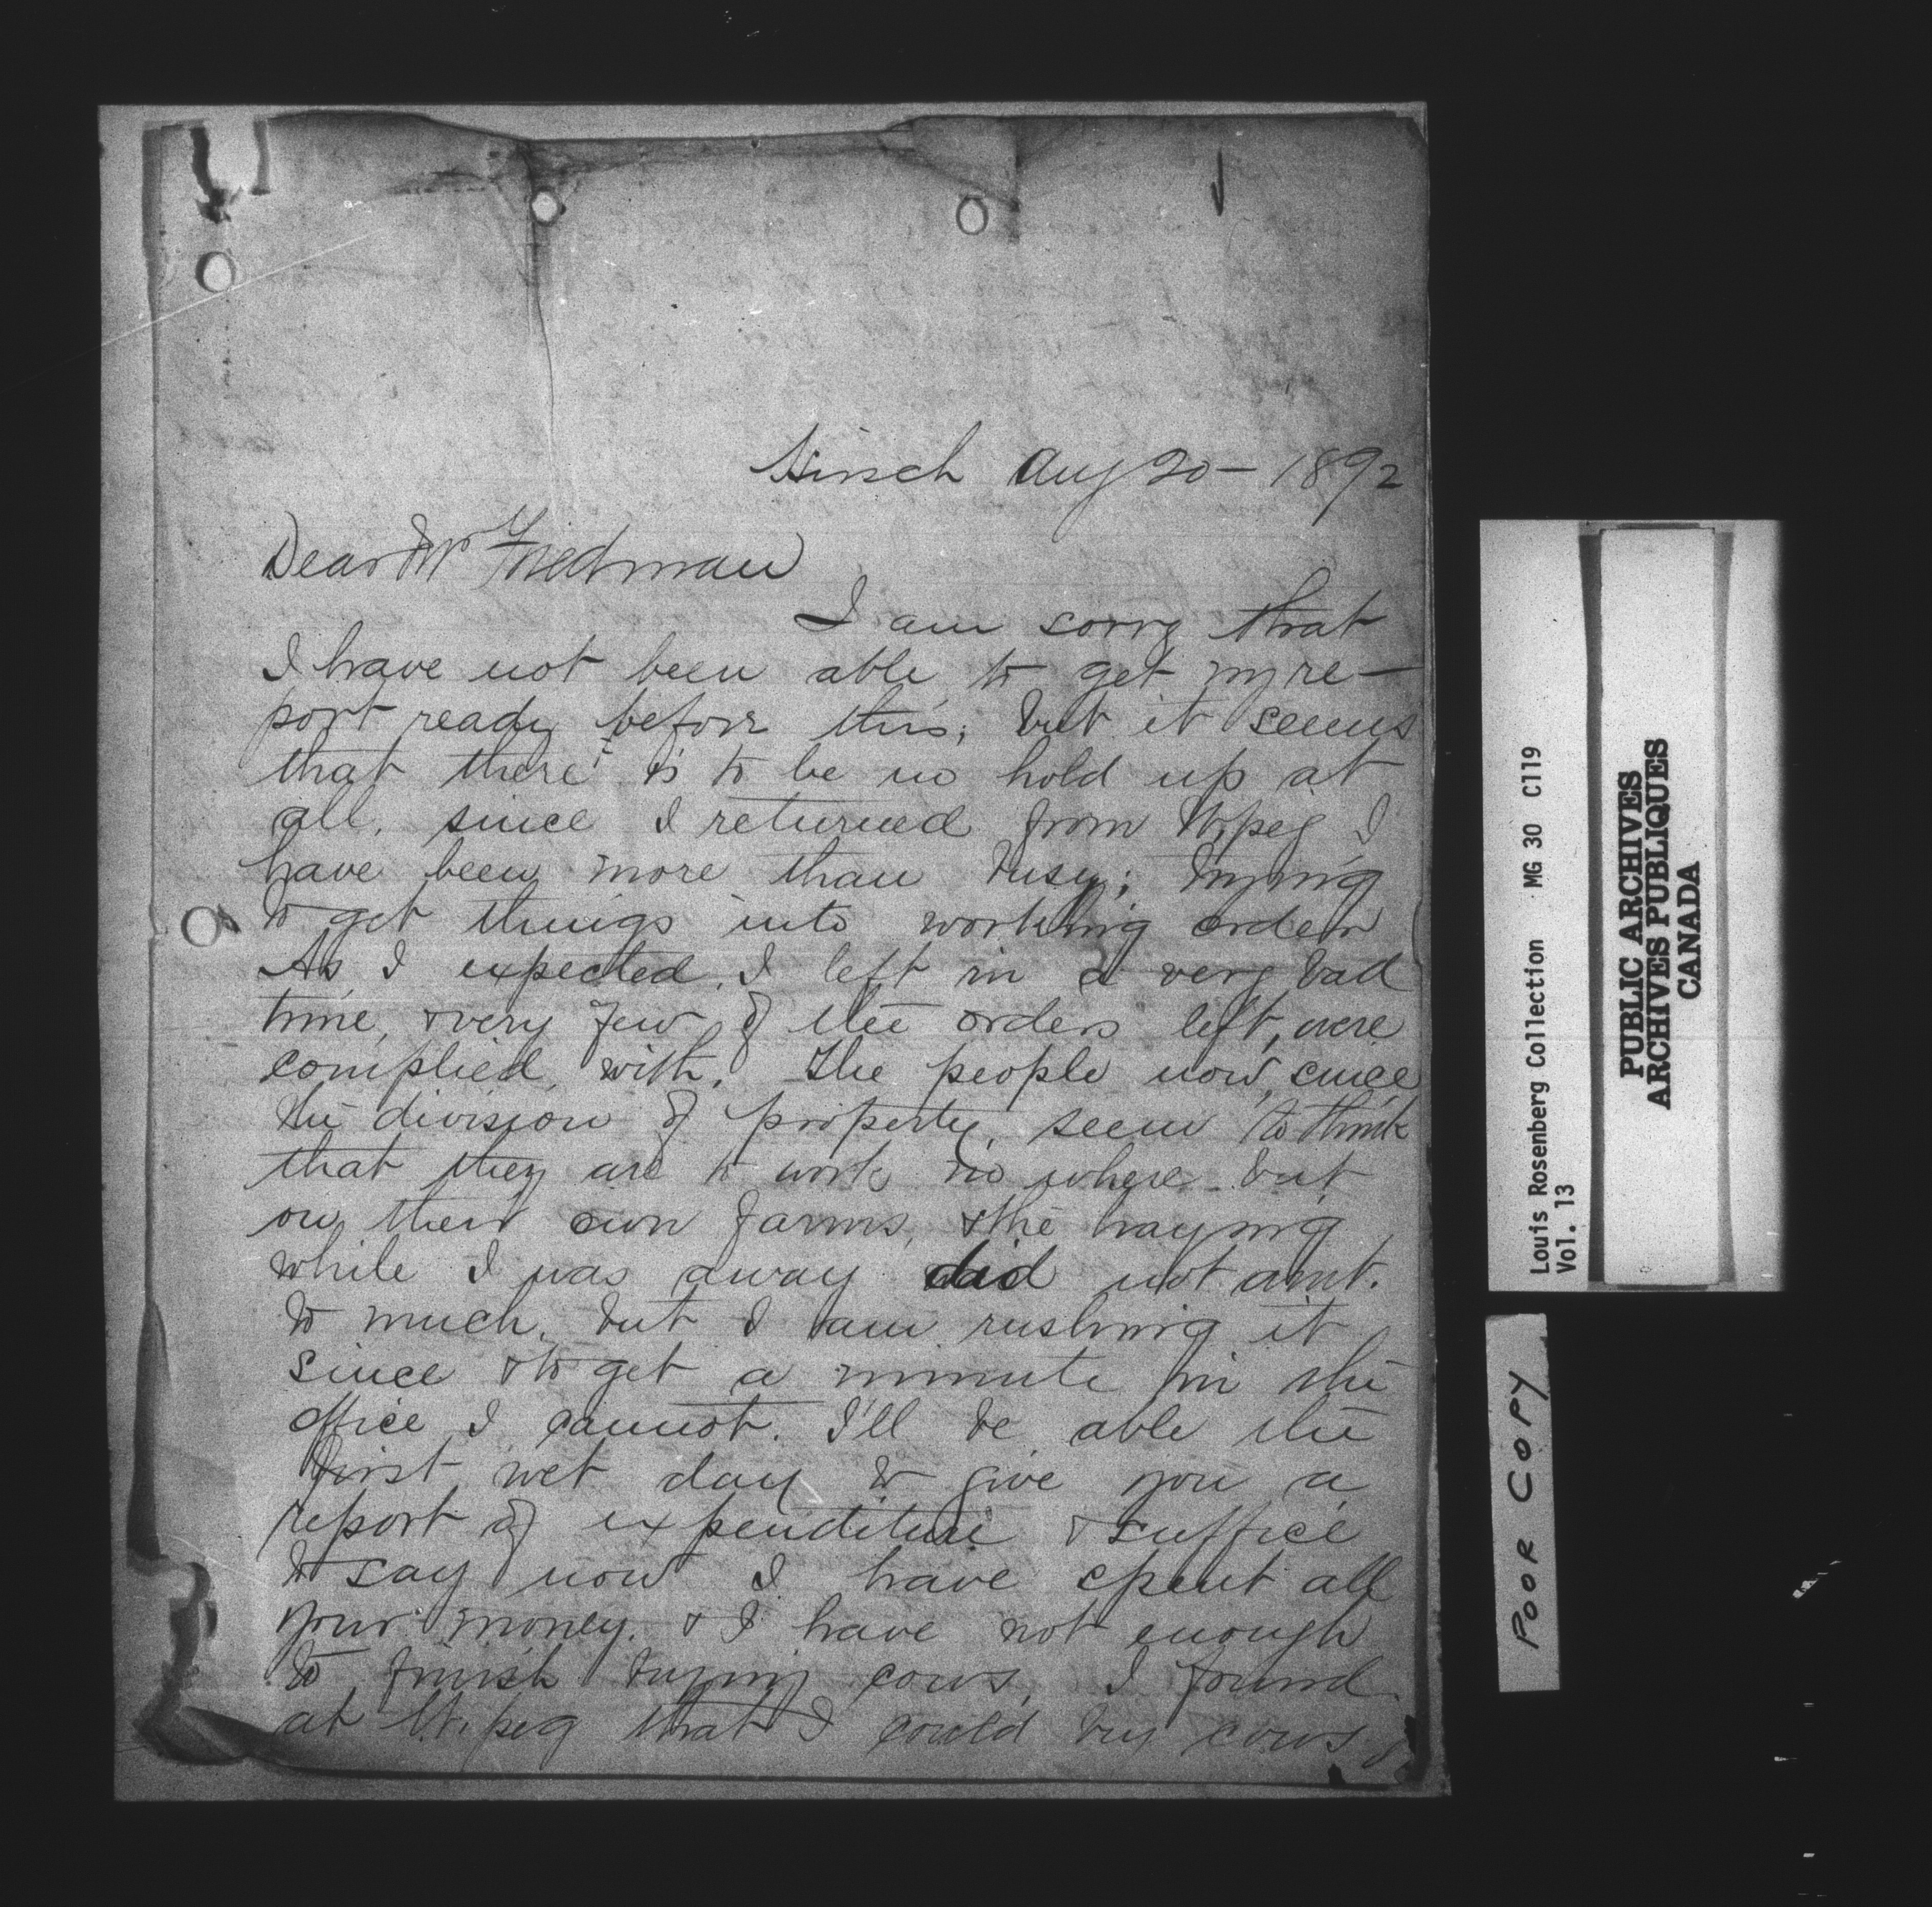 Hirsch Aug 20 – 1892
Dear Mr Friedman
I am sorry that
I have not been able to get my re-
port ready before this; but it seems
that there is to be no hold up at
all. since I returned from Wpeg I
have been more than busy; trying
to get things into working order
As I expected, I left in a very bad
time, & very few of the orders left, were
complied with. The people now, since
the division of property, seem to think
that they are to work no where but
on their own farms, & the haying
while I was away did not amt.
to much, but I am rushing it
since & to get a minute in the
office I cannot. I'll be able the
first wet day to give you a
report of expenditure & suffice
to say now I have spent all
your money. & I have not enough
to finish buying cows. I found
at W.peg that I could buy cows
Louis Rosenberg Collection MG 30 C119
Vol. 13
PUBLIC ARCHIVES
ARCHIVES PUBLIQUES
CANADA
POOR COPY